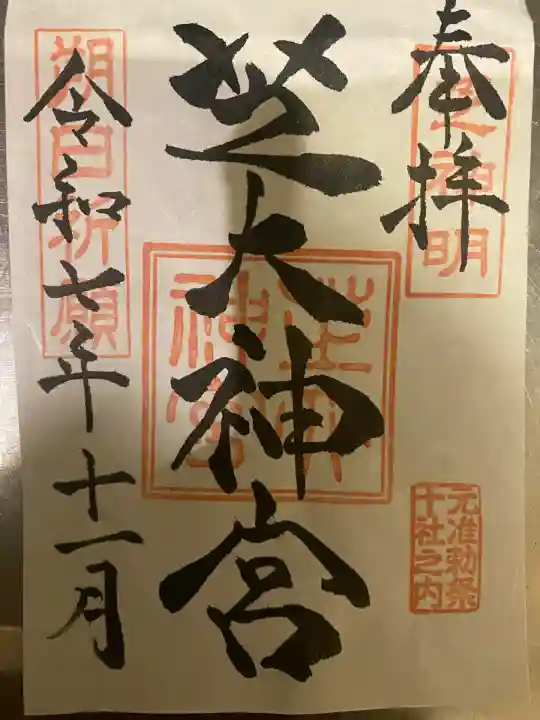 奉拝
芝神明
芝大神宮
元准勅祭
十社之内
令和七年十一月
朔日祈願